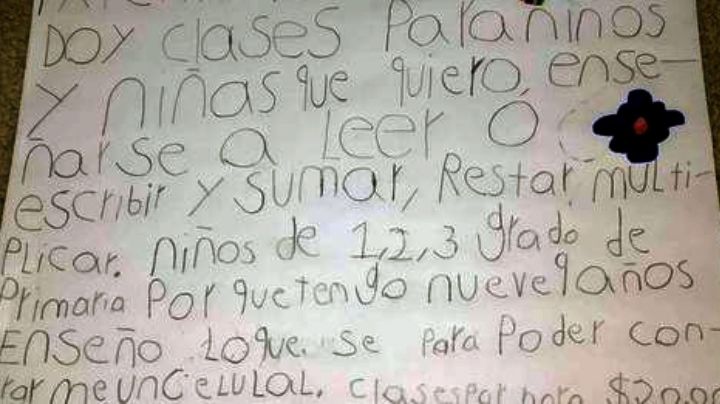 DOY clases Para niños
y niñas que quiero, ense-
ñarse a Leer O
escribir y sumar, Restar, multi-
Plicar. niños de 1,2,3 grado de
Primaria Por que tengo nueve 9 años
Enseño Loque. se Para Poder con-
rar me un celulal. clases Por hora $20.00